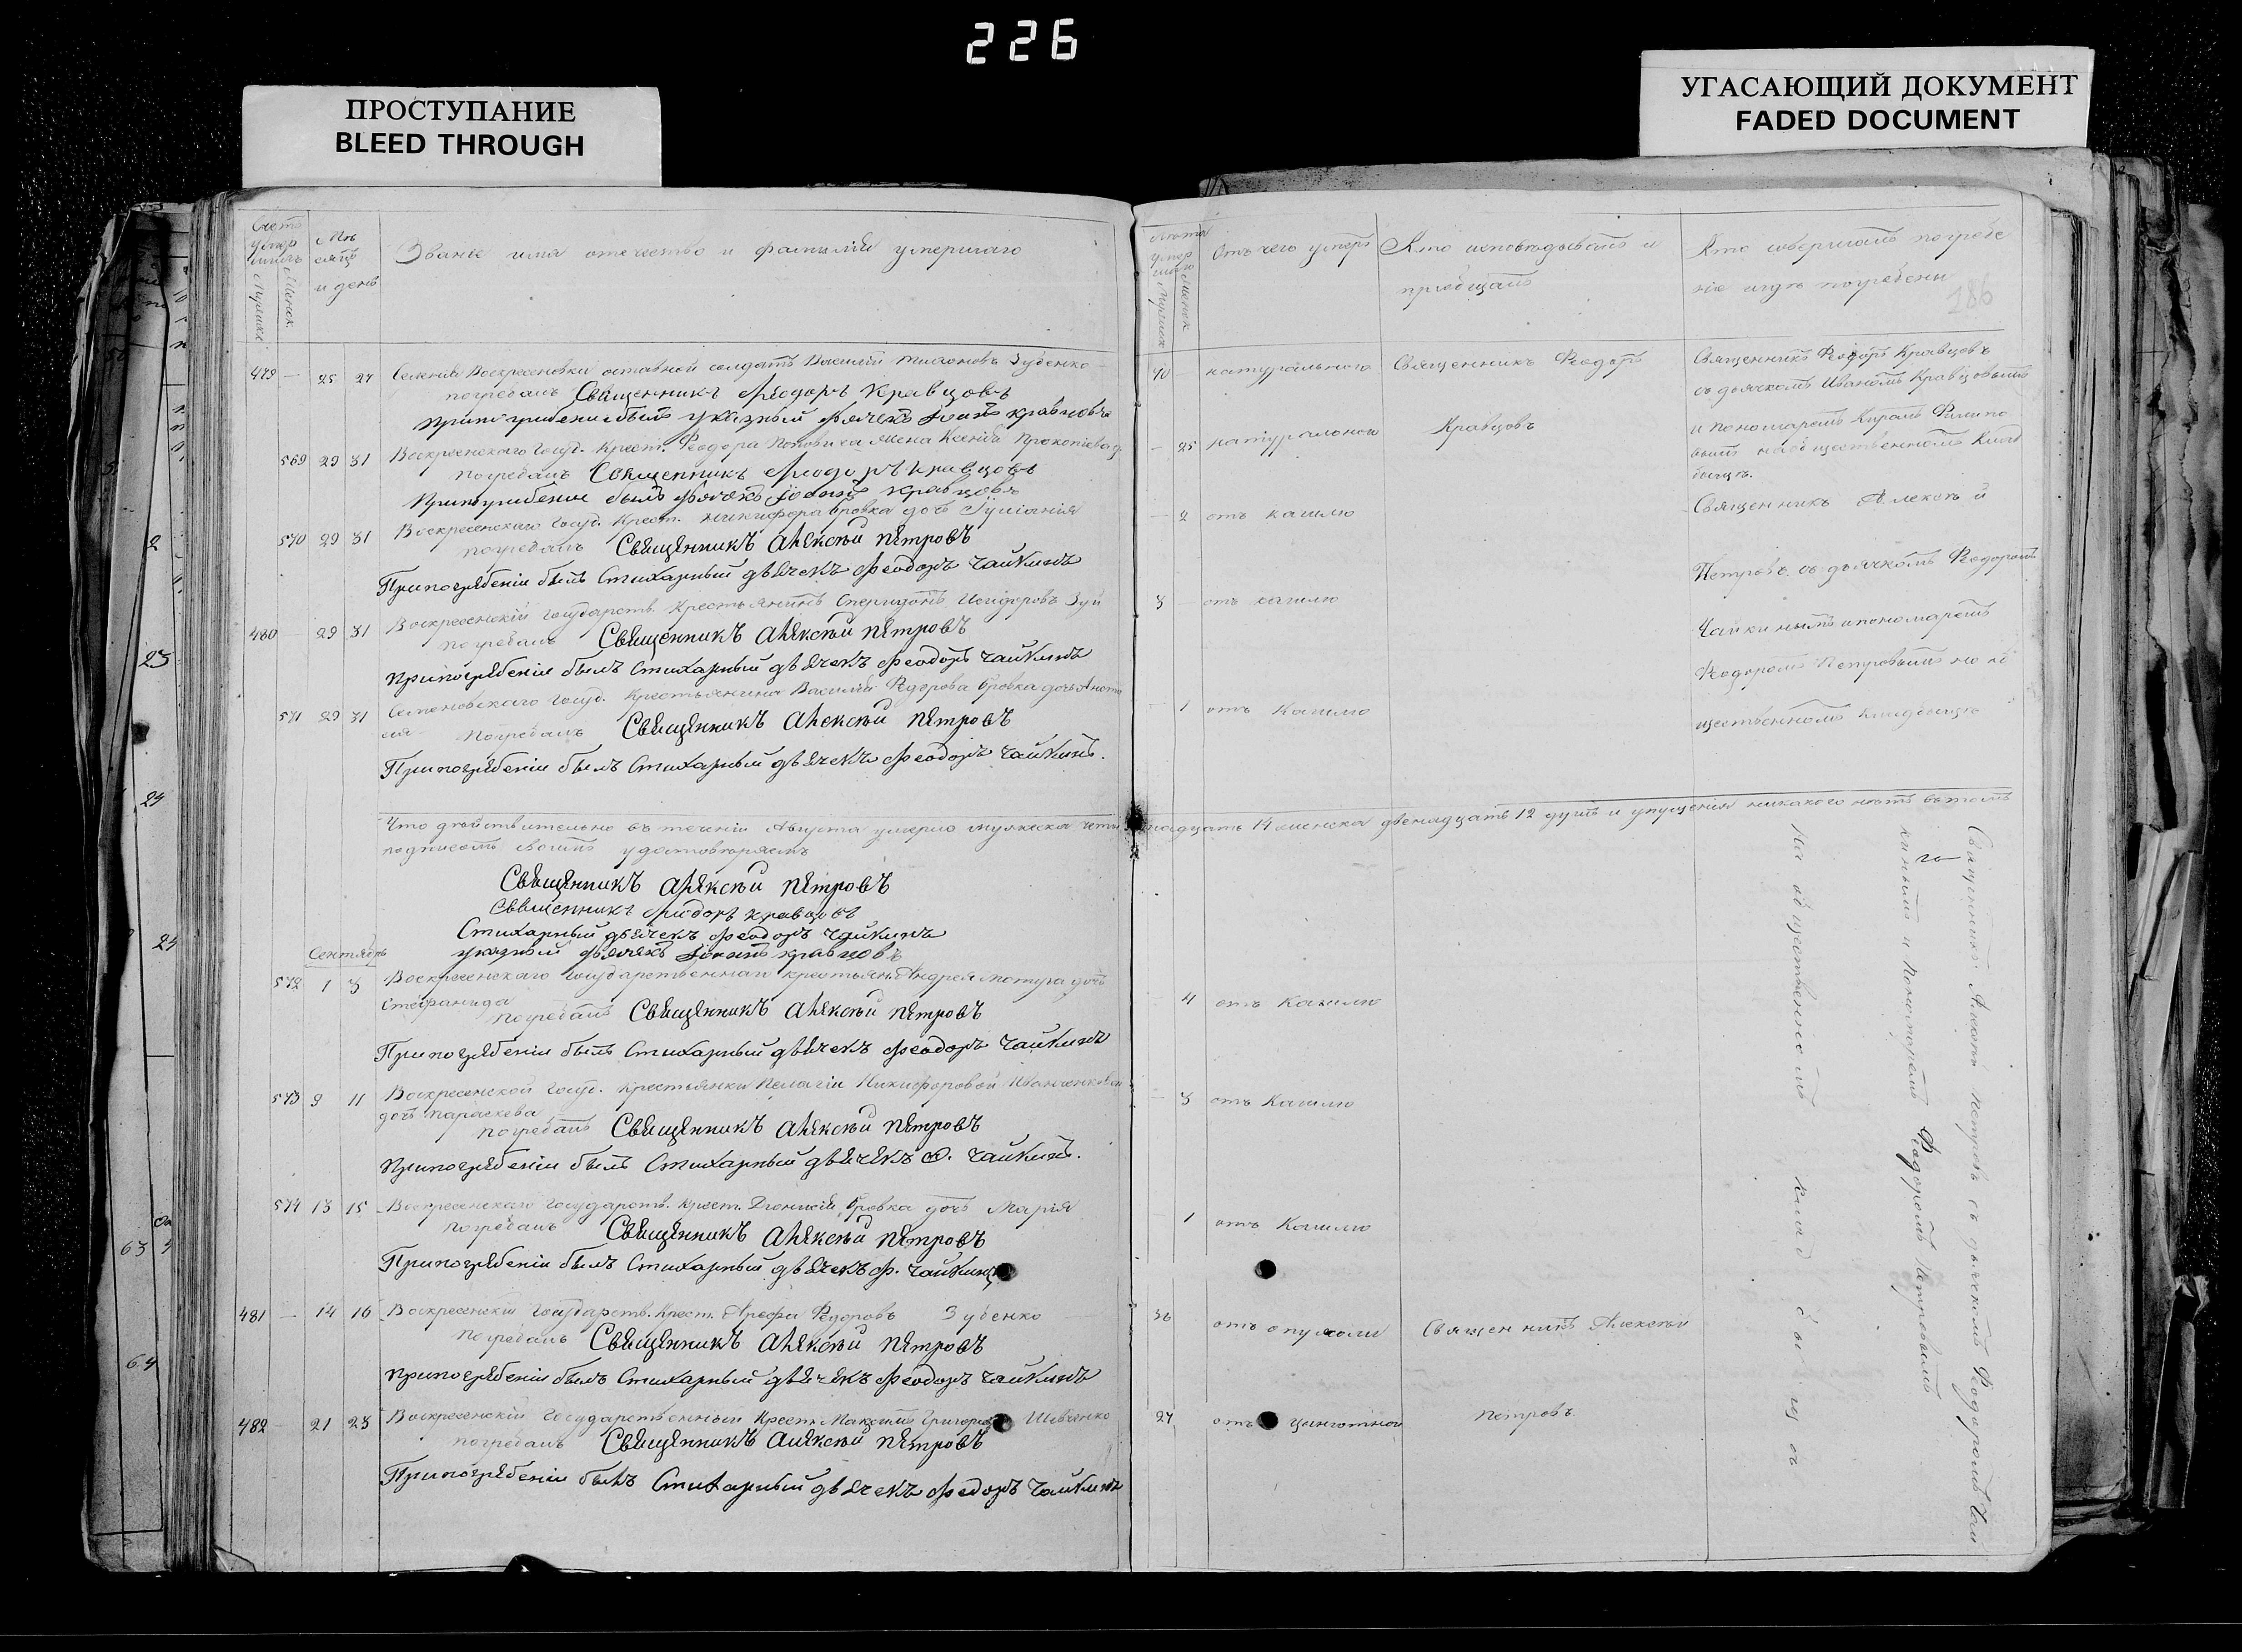 226
ПРОСТУПАНИЕ
BLEED THROUGH
УГАСАЮЩИЙ ДОКУМЕНТ
FADED DOCUMENT
Счетъ умершихъ
Мужеска
Женск.
Мѣсяцъ и день
Званіе имя отечество и фамилія умершаго
479 — 25 27 Селенія Воскресеновки отставной солдатъ Василій Зубенко
погребалъ Священникъ Феодоръ Кравцовъ
При погребеніи былъ указный дьячекъ Іоаннъ Кравцовъ
569 29 31 Воскресенскаго Госуд. Крест. Феодора Поповича жена Ксенія Прокопіева
погребалъ Священникъ Феодоръ Кравцовъ
При погребеніи былъ дьячекъ Іоаннъ Кравцовъ
570 29 31 Воскресенскаго Госуд. Крест. Никифора Бровка дочь Іуліанія
погребалъ Священникъ Алексѣй Петровъ
При погребеніи былъ Стихарный дьячекъ Феодоръ Чайкинъ
480 — 29 31 Воскресенскій Государств. Крестьянинъ Спиридонъ Исидоровъ Зуй
погребалъ Священникъ Алексѣй Петровъ
При погребеніи былъ Стихарный дьячекъ Феодоръ Чайкинъ
571 29 31 Семеновскаго Госуд. Крестьянина Василія Федорова Бровка дочь
погребалъ Священникъ Алексѣй Петровъ
При погребеніи былъ Стихарный дьячекъ Феодоръ Чайкинъ.
Что дѣйствительно въ теченіи Августа умерло мужеска четырнадцать 14 женска двенадцать 12 душъ и упущенія никакого нѣтъ въ томъ
подписомъ своимъ удостовѣряемъ
Священникъ Алексѣй Петровъ
Священникъ Феодоръ Кравцовъ
Стихарный дьячекъ Феодоръ Чайкинъ
указный дьячекъ Іоаннъ Кравцовъ
Сентябрь
572 1 3 Воскресенскаго Государственнаго крестьян. Андрея дочь
Стефанида
погребалъ Священникъ Алексѣй Петровъ
При погребеніи былъ Стихарный дьячекъ Феодоръ Чайкинъ
573 9 11 Воскресенской Госуд. Крестьянки Пелагіи Никифоровой Иванченковой
дочь Параскева
погребалъ Священникъ Алексѣй Петровъ
При погребеніи былъ Стихарный дьячекъ Ф. Чайкинъ.
574 13 15 Воскресенскаго Государств. Крест. Діонисія Бровка дочь Марія
погребалъ Священникъ Алексѣй Петровъ
При погребеніи былъ Стихарный дьячекъ Ф. Чайкинъ
481 — 14 16 Воскресенскій Государств. Крест. Арефа Федоровъ Зубенко
погребалъ Священникъ Алексѣй Петровъ
При погребеніи былъ Стихарный дьячекъ Феодоръ Чайкинъ
482 — 21 23 Воскресенскій Государственный Крест. Максимъ Шевченко
погребалъ Священникъ Алексѣй Петровъ
При погребеніи былъ Стихарный дьячекъ Феодоръ Чайкинъ
Лѣта умершаго
Мужеска
Женск
Отъ чего умеръ
Кто исповѣдывалъ и
пріобщалъ
Кто совершалъ погребе
ніе и гдѣ погребены
186
70 — натуральною Священникъ Феодоръ
— 25 натуральною Кравцовъ
— 2 отъ кашлю
3 — отъ кашлю
— 1 отъ Кашлю
— 4 отъ Кашлю
— 3 отъ Кашлю
— 1 отъ Кашлю
36 отъ опухоли Священникъ Алексѣй
27 отъ цинготной Петровъ.
Священникъ Феодоръ Кравцовъ
съ дьячкомъ Иваномъ Кравцовымъ
и пономаремъ Киромъ Филипо
вымъ на общественномъ Клад
бищѣ.
Священникъ Алексѣй
Петровъ съ дьячкомъ Феодоромъ
Чайкинымъ и пономаремъ
Феодоромъ Петровымъ на об
щественномъ Кладбищѣ
Священникъ Алексѣй Петровъ съ дьячкомъ Феодоромъ Чай
кинымъ и Пономаремъ Федоромъ Петровымъ
На общественномъ Кладбищѣ